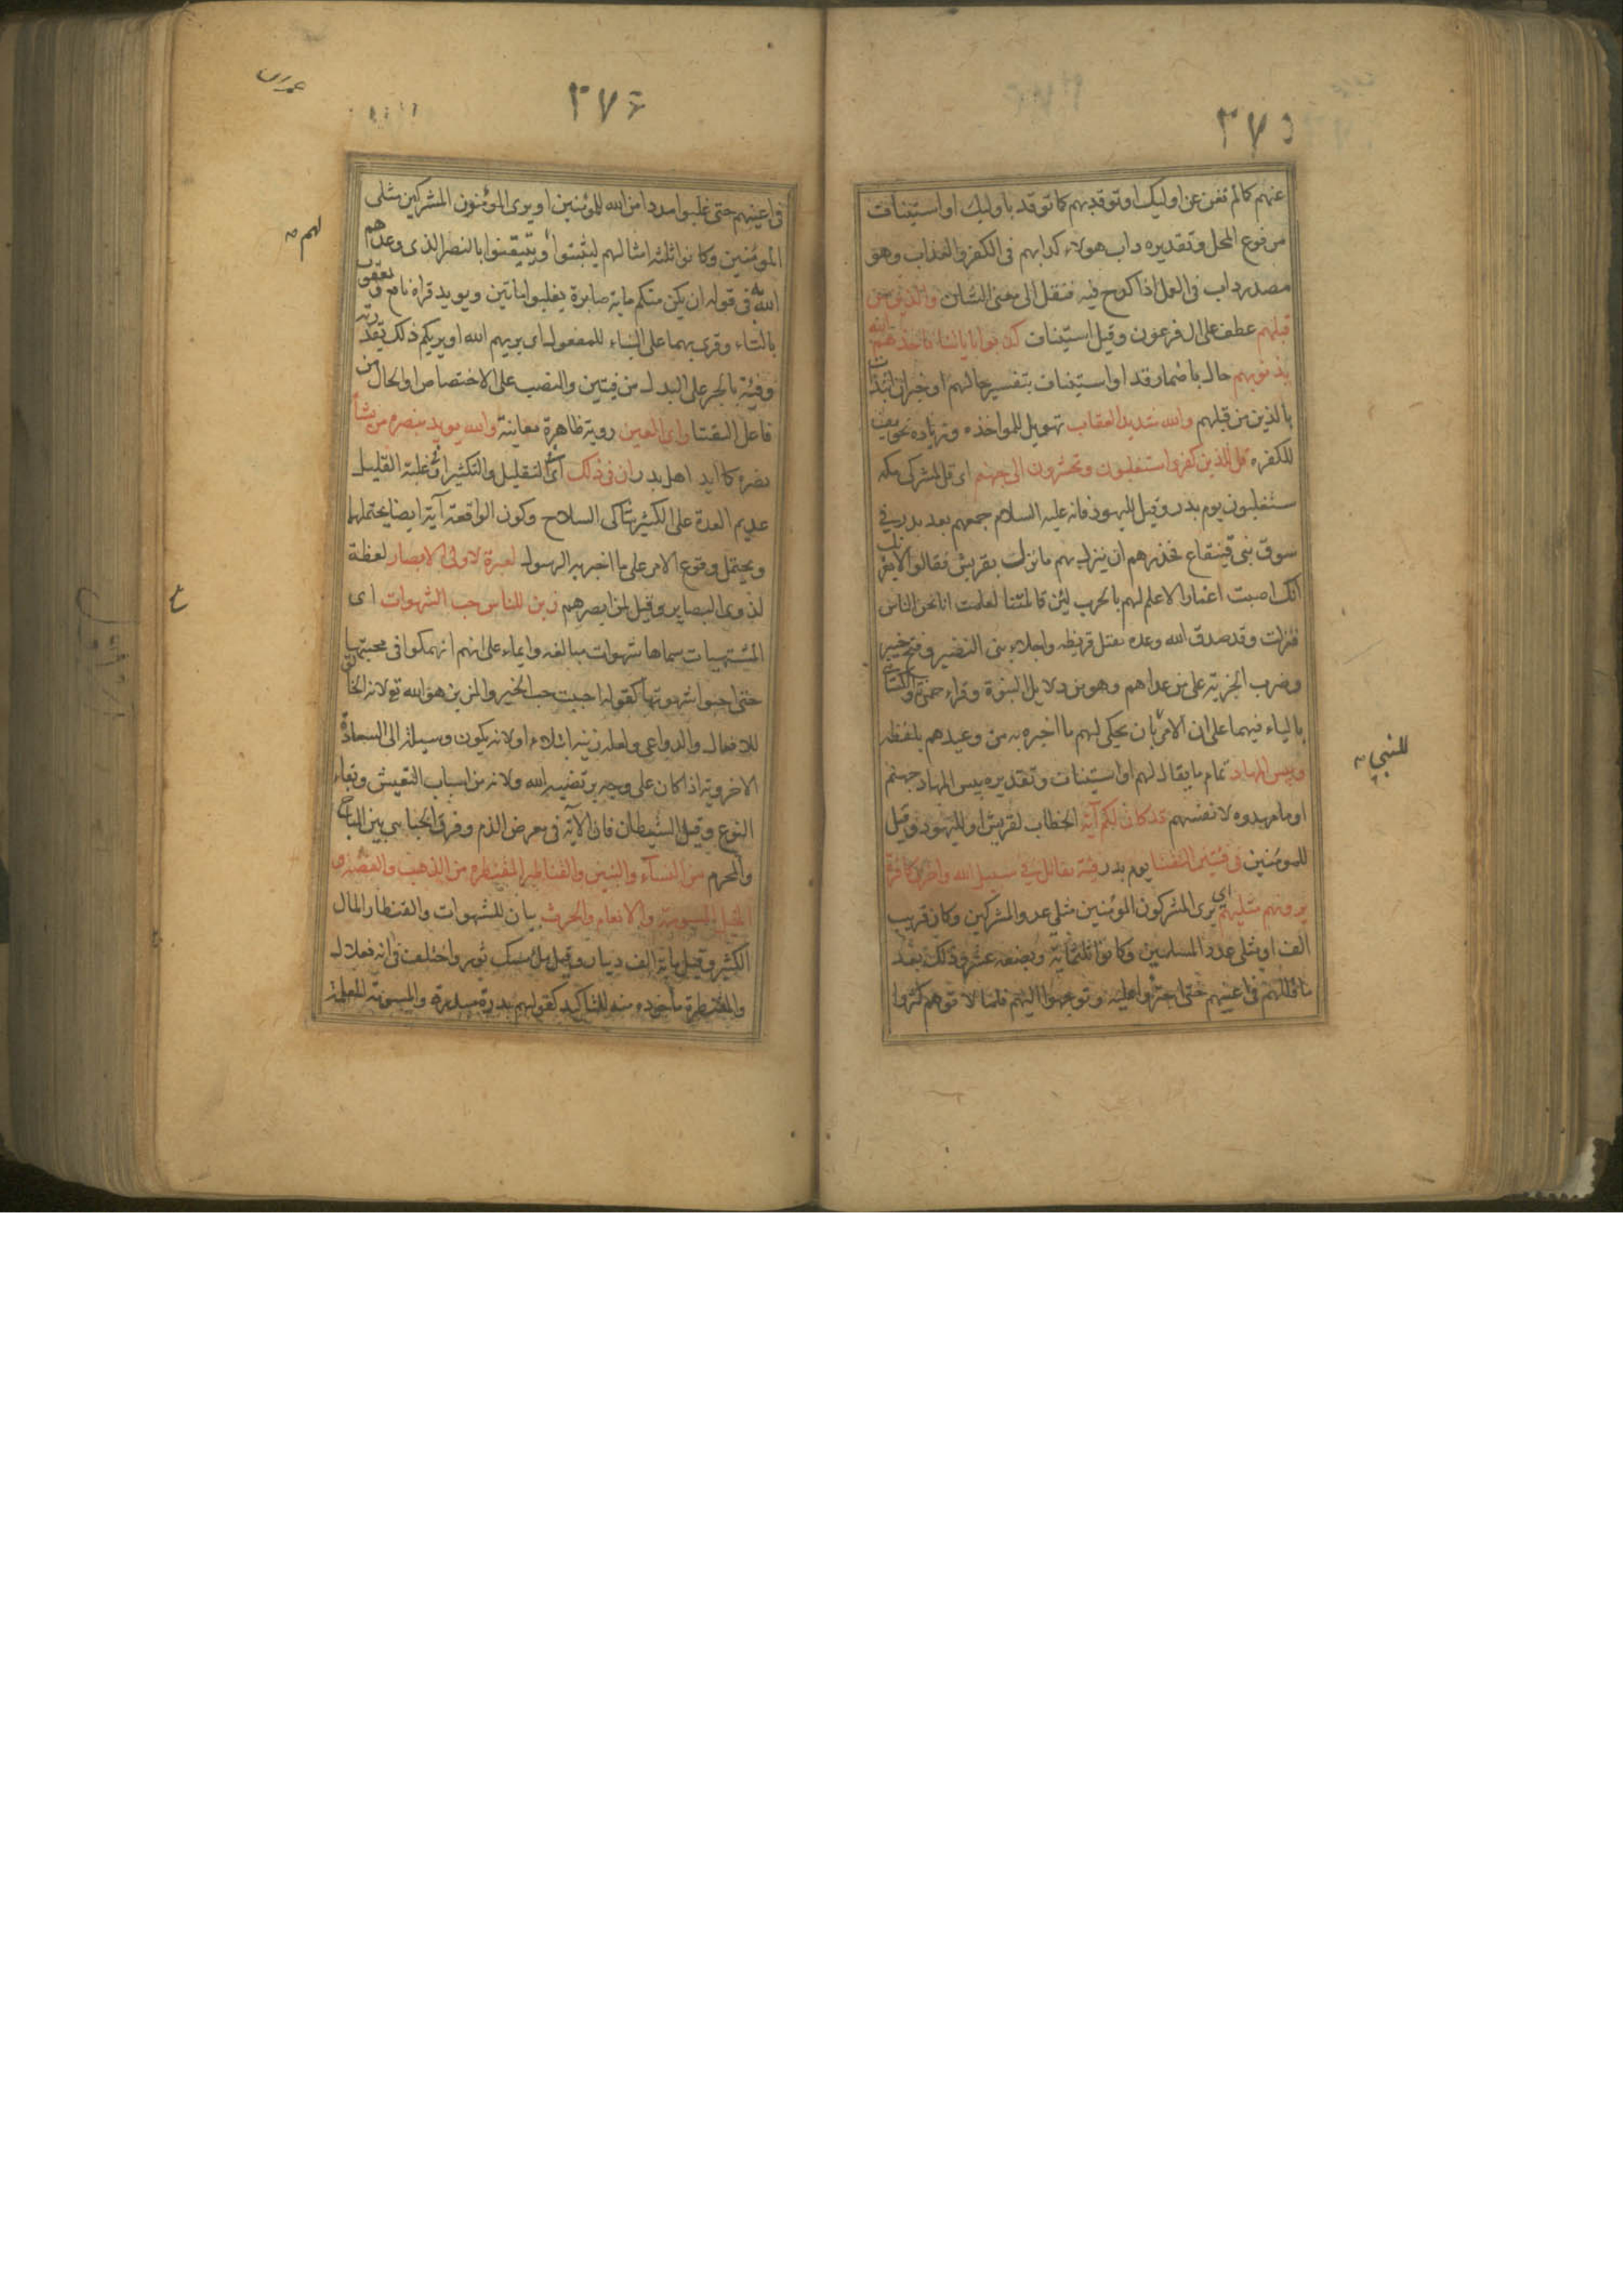 ٣٧٥
عنهم كالم تغن عن اوليك او توقد بهم كما توقد باوليك او استيناف
مرفوع المحل وتقديره داب هولاء كدابهم فى الكفر والعذاب وهو
مصدر داب فى العمل اذا كدح فيه فنقل الى معنى الشان والذين من
قبلهم عطف على ال فرعون وقيل استيناف كذبوا باياتنا فاخذهم الله
بذنوبهم حال باضمار قد او استيناف بتفسير حالهم او خبر ان ابتدات
بالذين من قبلهم والله شديد العقاب تهويل للمواخذه وزياده تخويف
للكفره قل للذين كفروا ستغلبون وتحشرون الى جهنم اى قل لمشركى مكه
ستغلبون يوم بدر وقيل لليهود فانه عليه السلام جمعهم بعد بدر فى
سوق بنى قينقاع فحذرهم ان ينزل بهم ما نزل بقريش فقالوا لا يغرنك
انك اصبت اغمارا لا علم لهم بالحرب لئن قاتلتنا لعلمت انا نحن الناس
فنزلت وقد صدق الله وعده بقتل قريظه واجلاء بنى النضير وفتح خيبر
وضرب الجزية على من عداهم وهو من دلايل النبوة وقراء حمزة والكسائى
بالياء فيهما على ان الامر بان يحكى لهم ما اخبره به من وعيدهم بلفظه
للنبي
وبيس المهاد تمام ما يقال لهم او استيناف وتقديره بيس المهاد جهنم
او ما مهدوه لانفسهم قد كان لكم آية الخطاب لقريش او لليهود وقيل
للمومنين فى فئتين التقتا يوم بدر فئة تقاتل فى سبيل الله واخرى كافرة
يرونهم مثليهم اى يرى المشركون المومنين مثلى عدد المشركين وكان قريب
الف او مثلى عدد المسلمين وكانوا ثلثماية وبضعه عشر وذلك بعد
ما قللهم فى اعينهم حتى اجترؤا عليه وتوجهوا اليهم فلما لاقوهم كثروا
٣٧٦
فى اعينهم حتى غلبوا مددا من الله للمومنين او يرى المؤمنون المشركين مثلى
المومنين وكانوا ثلثه امثالهم ليثبتوا ويتيقنوا بالنصر الذى وعدهم
لهم
الله فى قوله ان يكن منكم ماية صابرة يغلبوا ماتين ويويد قراه نافع ويعقوب
بالتاء وقرى بهما على البناء للمفعول اى يريهم الله او يريكم ذلك بقدرته
وفئة بالجر على البدل من فيتين والنصب على الاختصاص او الحال من
فاعل التقتا راى العين روية ظاهرة معاينة والله يويد بنصره من يشاء
نصره كما ايد اهل بدر ان فى ذلك اى التقليل والتكثير او غلبة القليل
عديم العدة على الكثير شاكى السلاح وكون الواقعة آية ايضا يحتملهما
ويحتمل وقوع الامر على ما اخبر به الرسول لعبرة لاولى الابصار لعظة
لذوى البصاير وقيل لمن ابصرهم زين للناس حب الشهوات اى
ع
المشتهيات سماها شهوات مبالغه وايماء على انهم انهمكوا فى محبتها
حتى احبوا شهوتها كقوله احببت حب الخير والمزين هو الله تع لانه الخالق
للافعال والدواعى ولعله زينه ابتلاء او لانه يكون وسيلة الى السعادة
الاخروية اذا كان على وجه يرتضيه الله ولانه من اسباب التعيش وبقاء
النوع وقيل الشيطان فان الآية فى معرض الذم وفرق الجبايى بين المباح
والمحرم من النساء والبنين والقناطير المقنطره من الذهب والفضه و
الخيل المسومة والانعام والحرث بيان للشهوات والقنطار المال
الكثير وقيل ماية الف دينار وقيل ملئ مسك ثور واختلف فى انه فعلال
والمقنطرة ماخوده منه للتاكيد كقولهم بدرة مبدرة والمسومة المعلمة